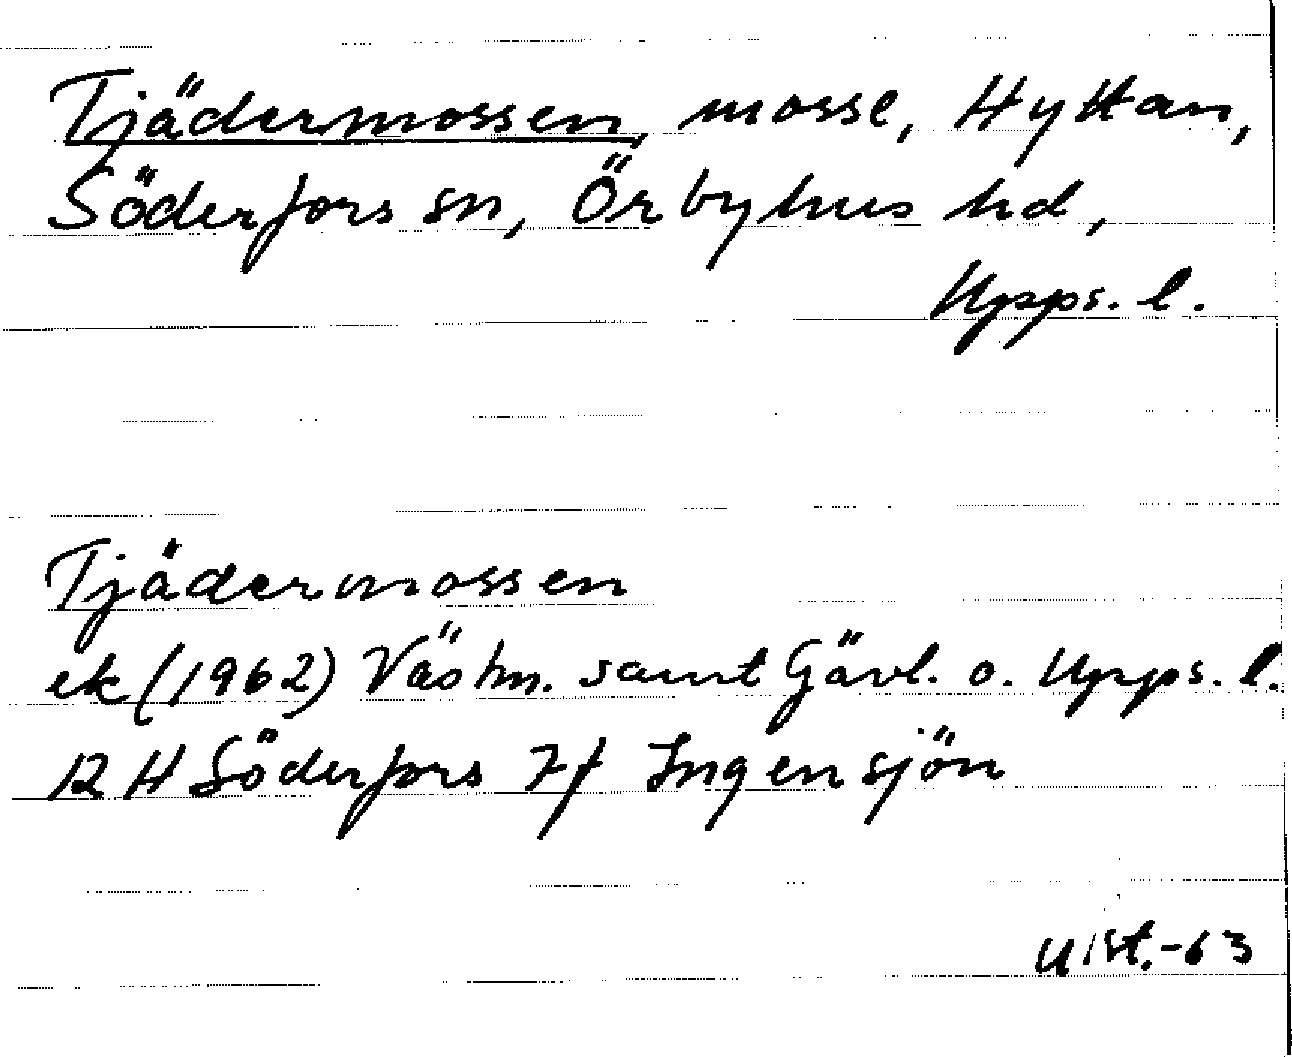 Tjädermossen, mosse, Hyttan,
Söderfors sn, Örbyhus hd,
Upps. l.
Tjädermossen
ek (1962) Västm. samt Gävl. o. Upps. l.
12 H Söderfors 7f Ingensjön
U ist. -63